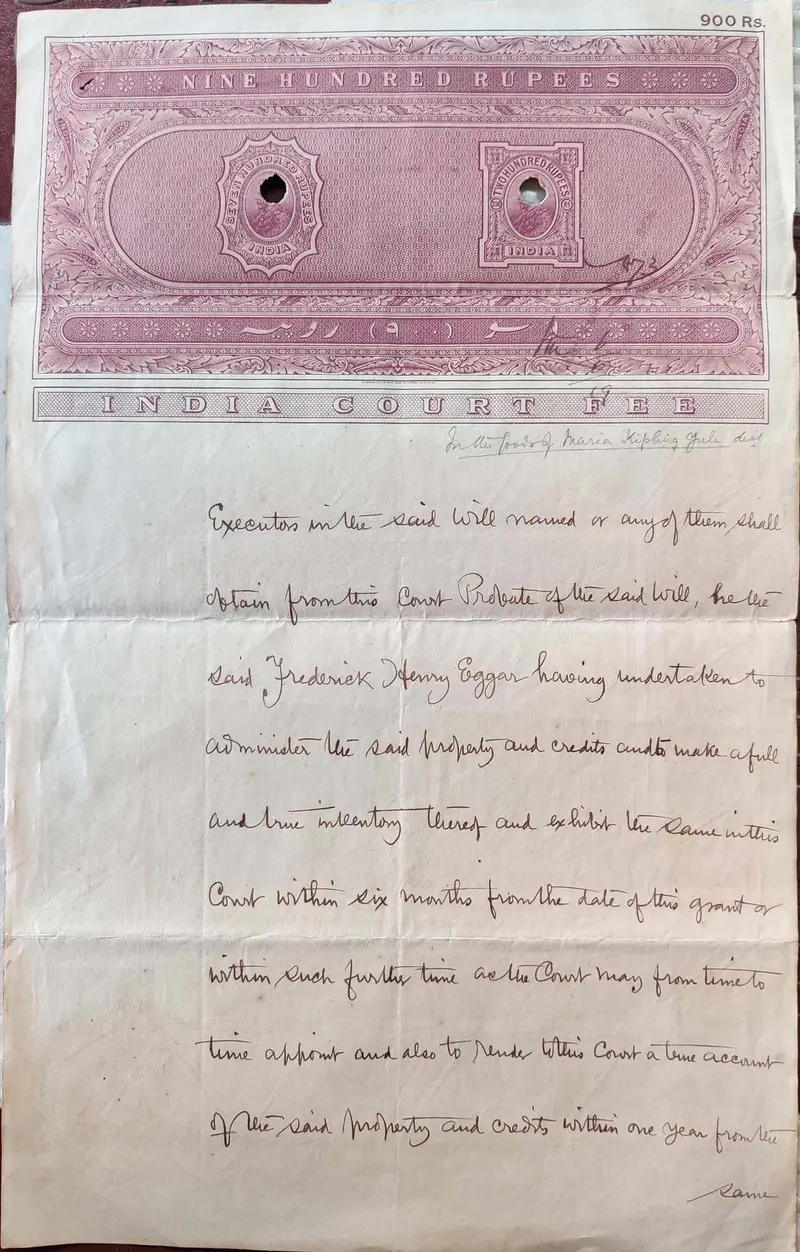 900 Rs.
NINE HUNDRED RUPEES
SEVEN HUNDRED RUPEES
INDIA
TWO HUNDRED RUPEES
INDIA
نو سو (۹۰۰) روپیہ
INDIA COURT FEE
In the Goods of Maria Kipling Yule decd
Executors in the said Will named or any of them shall
obtain from this Court Probate of the said Will, he the
said Frederick Henry Eggar having undertaken to
administer the said property and credits and to make a full
and true inventory thereof and exhibit the same in this
Court within six months from the date of this grant or
within such further time as the Court may from time to
time appoint and also to render to this Court a true account
of the said property and credits within one year from the
same